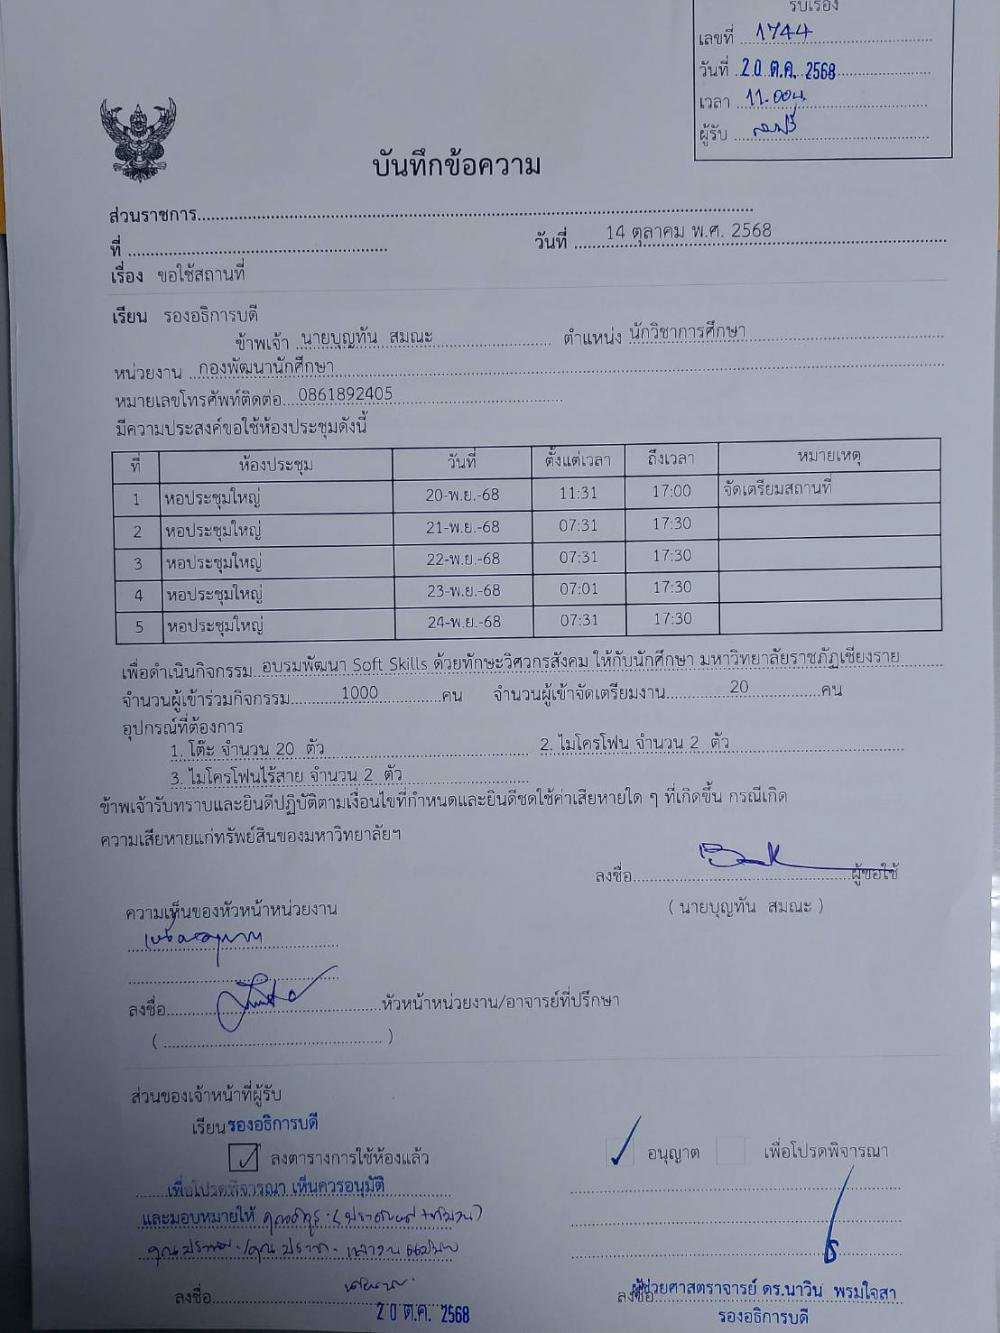 รับเรื่อง
เลขที่ 1744
วันที่ 20 ต.ค. 2568
เวลา 11.00น
ผู้รับ
บันทึกข้อความ
ส่วนราชการ
ที่ วันที่ 14 ตุลาคม พ.ศ. 2568
เรื่อง ขอใช้สถานที่
เรียน รองอธิการบดี
ข้าพเจ้า นายบุญทัน สมณะ ตำแหน่ง นักวิชาการศึกษา
หน่วยงาน กองพัฒนานักศึกษา
หมายเลขโทรศัพท์ติดต่อ 0861892405
มีความประสงค์ขอใช้ห้องประชุมดังนี้
ที่ ห้องประชุม วันที่ ตั้งแต่เวลา ถึงเวลา หมายเหตุ
1 หอประชุมใหญ่ 20-พ.ย.-68 11:31 17:00 จัดเตรียมสถานที่
2 หอประชุมใหญ่ 21-พ.ย.-68 07:31 17:30
3 หอประชุมใหญ่ 22-พ.ย.-68 07:31 17:30
4 หอประชุมใหญ่ 23-พ.ย.-68 07:01 17:30
5 หอประชุมใหญ่ 24-พ.ย.-68 07:31 17:30
เพื่อดำเนินกิจกรรม อบรมพัฒนา Soft Skills ด้วยทักษะวิศวกรสังคม ให้กับนักศึกษา มหาวิทยาลัยราชภัฏเชียงราย
จำนวนผู้เข้าร่วมกิจกรรม 1000 คน จำนวนผู้เข้าจัดเตรียมงาน 20 คน
อุปกรณ์ที่ต้องการ
1. โต๊ะ จำนวน 20 ตัว 2. ไมโครโฟน จำนวน 2 ตัว
3. ไมโครโฟนไร้สาย จำนวน 2 ตัว
ข้าพเจ้ารับทราบและยินดีปฏิบัติตามเงื่อนไขที่กำหนดและยินดีชดใช้ค่าเสียหายใด ๆ ที่เกิดขึ้น กรณีเกิด
ความเสียหายแก่ทรัพย์สินของมหาวิทยาลัยฯ
ลงชื่อ ผู้ขอใช้
( นายบุญทัน สมณะ )
ความเห็นของหัวหน้าหน่วยงาน
ลงชื่อ หัวหน้าหน่วยงาน/อาจารย์ที่ปรึกษา
( )
ส่วนของเจ้าหน้าที่ผู้รับ
เรียน รองอธิการบดี
ลงตารางการใช้ห้องแล้ว อนุญาต เพื่อโปรดพิจารณา
เพื่อโปรดพิจารณา เห็นควรอนุมัติ
และมอบหมายให้
ลงชื่อ
20 ต.ค. 2568
ลงชื่อ ผู้ช่วยศาสตราจารย์ ดร.นาวิน พรมใจสา
รองอธิการบดี